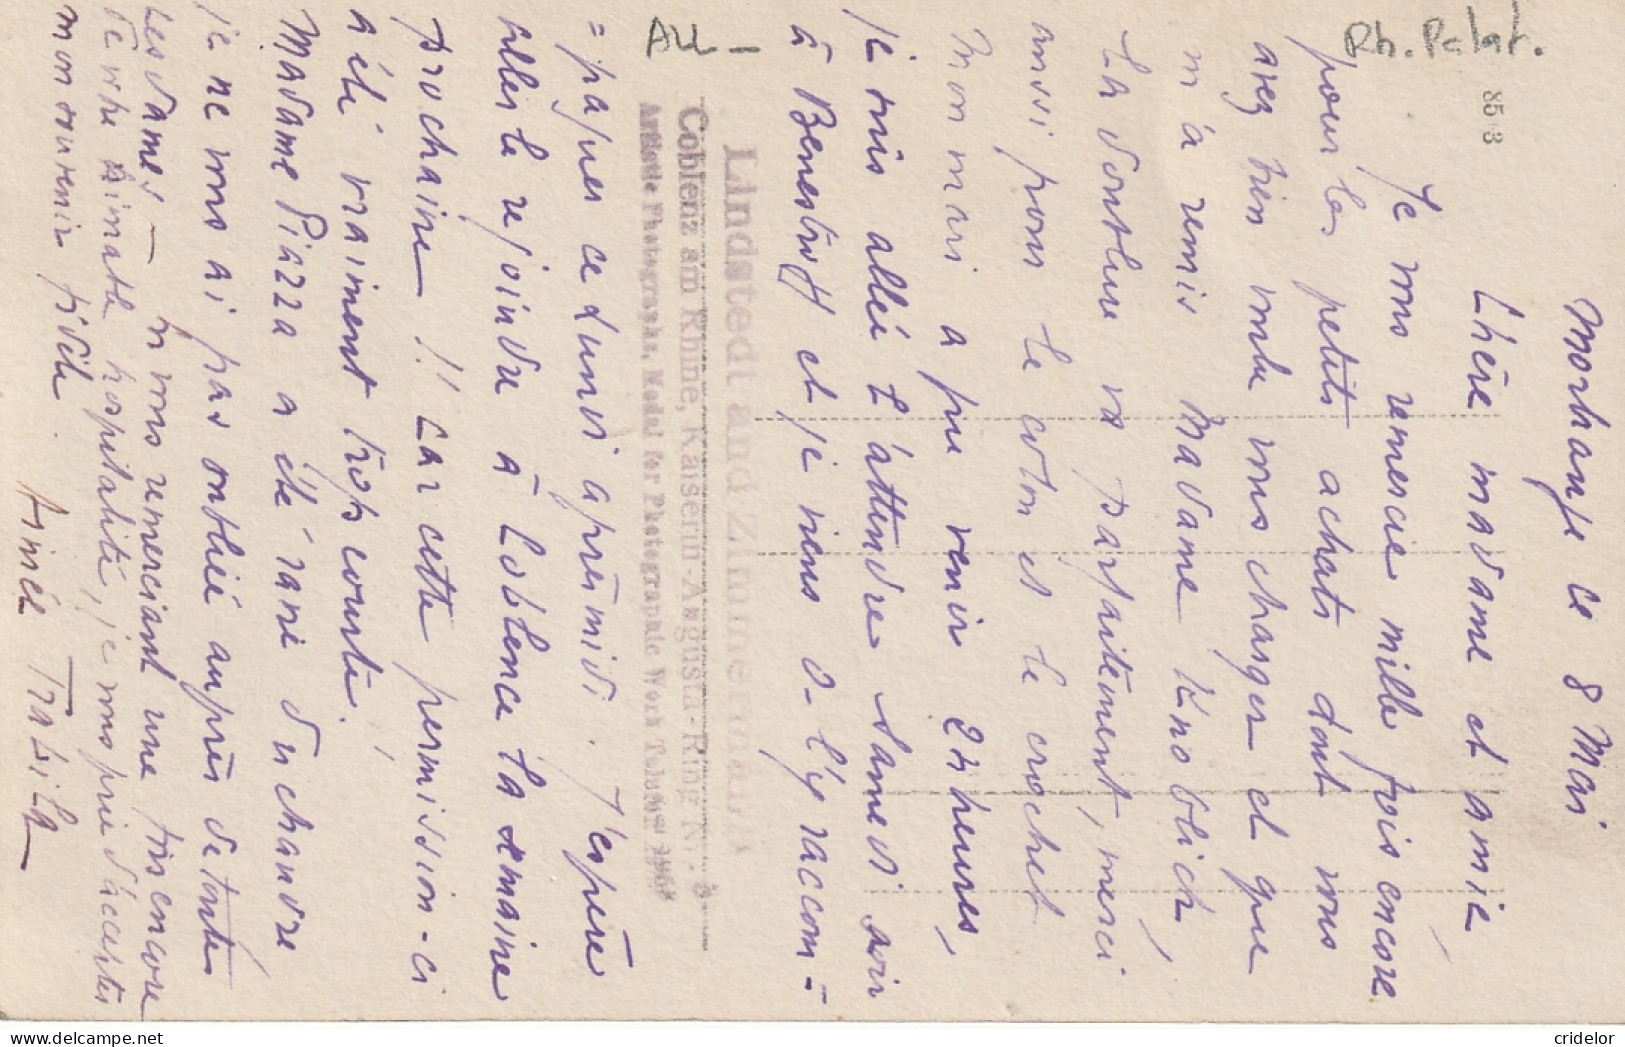 Morhange ce 8 Mai
Chère madame et amie
Je vous remercie mille fois encore
pour les petits achats dont vous
avez bien voulu vous charger et que
m'a remis Madame Knoblich,
La doublure va parfaitement, merci
aussi pour le coton et le crochet
Mon mari a pu venir 24 heures,
je suis allée l'attendre Samedi soir
à Benestroff et je viens d-l'y raccom-
=pagner ce Lundi après midi. J'espère
aller le rejoindre à Coblence la semaine
prochaine !! Car cette permission-ci
a été vraiment trop courte.
Madame Piazza a été ravie du chandre
je ne vous ai pas oubliée auprès de toutes
ces dames — En vous remerciant une fois encore
de votre aimable hospitalité, je vous prie d'accepter
mon souvenir fidèle
Aimée
Lindstedt and Zimmermann
Coblenz am Rhine, Kaiserin-Augusta-Ring Nr.
Artistic Photographs, Medal for Photographic Work
ALL —
Rh. Palat.
85 3
cridelor